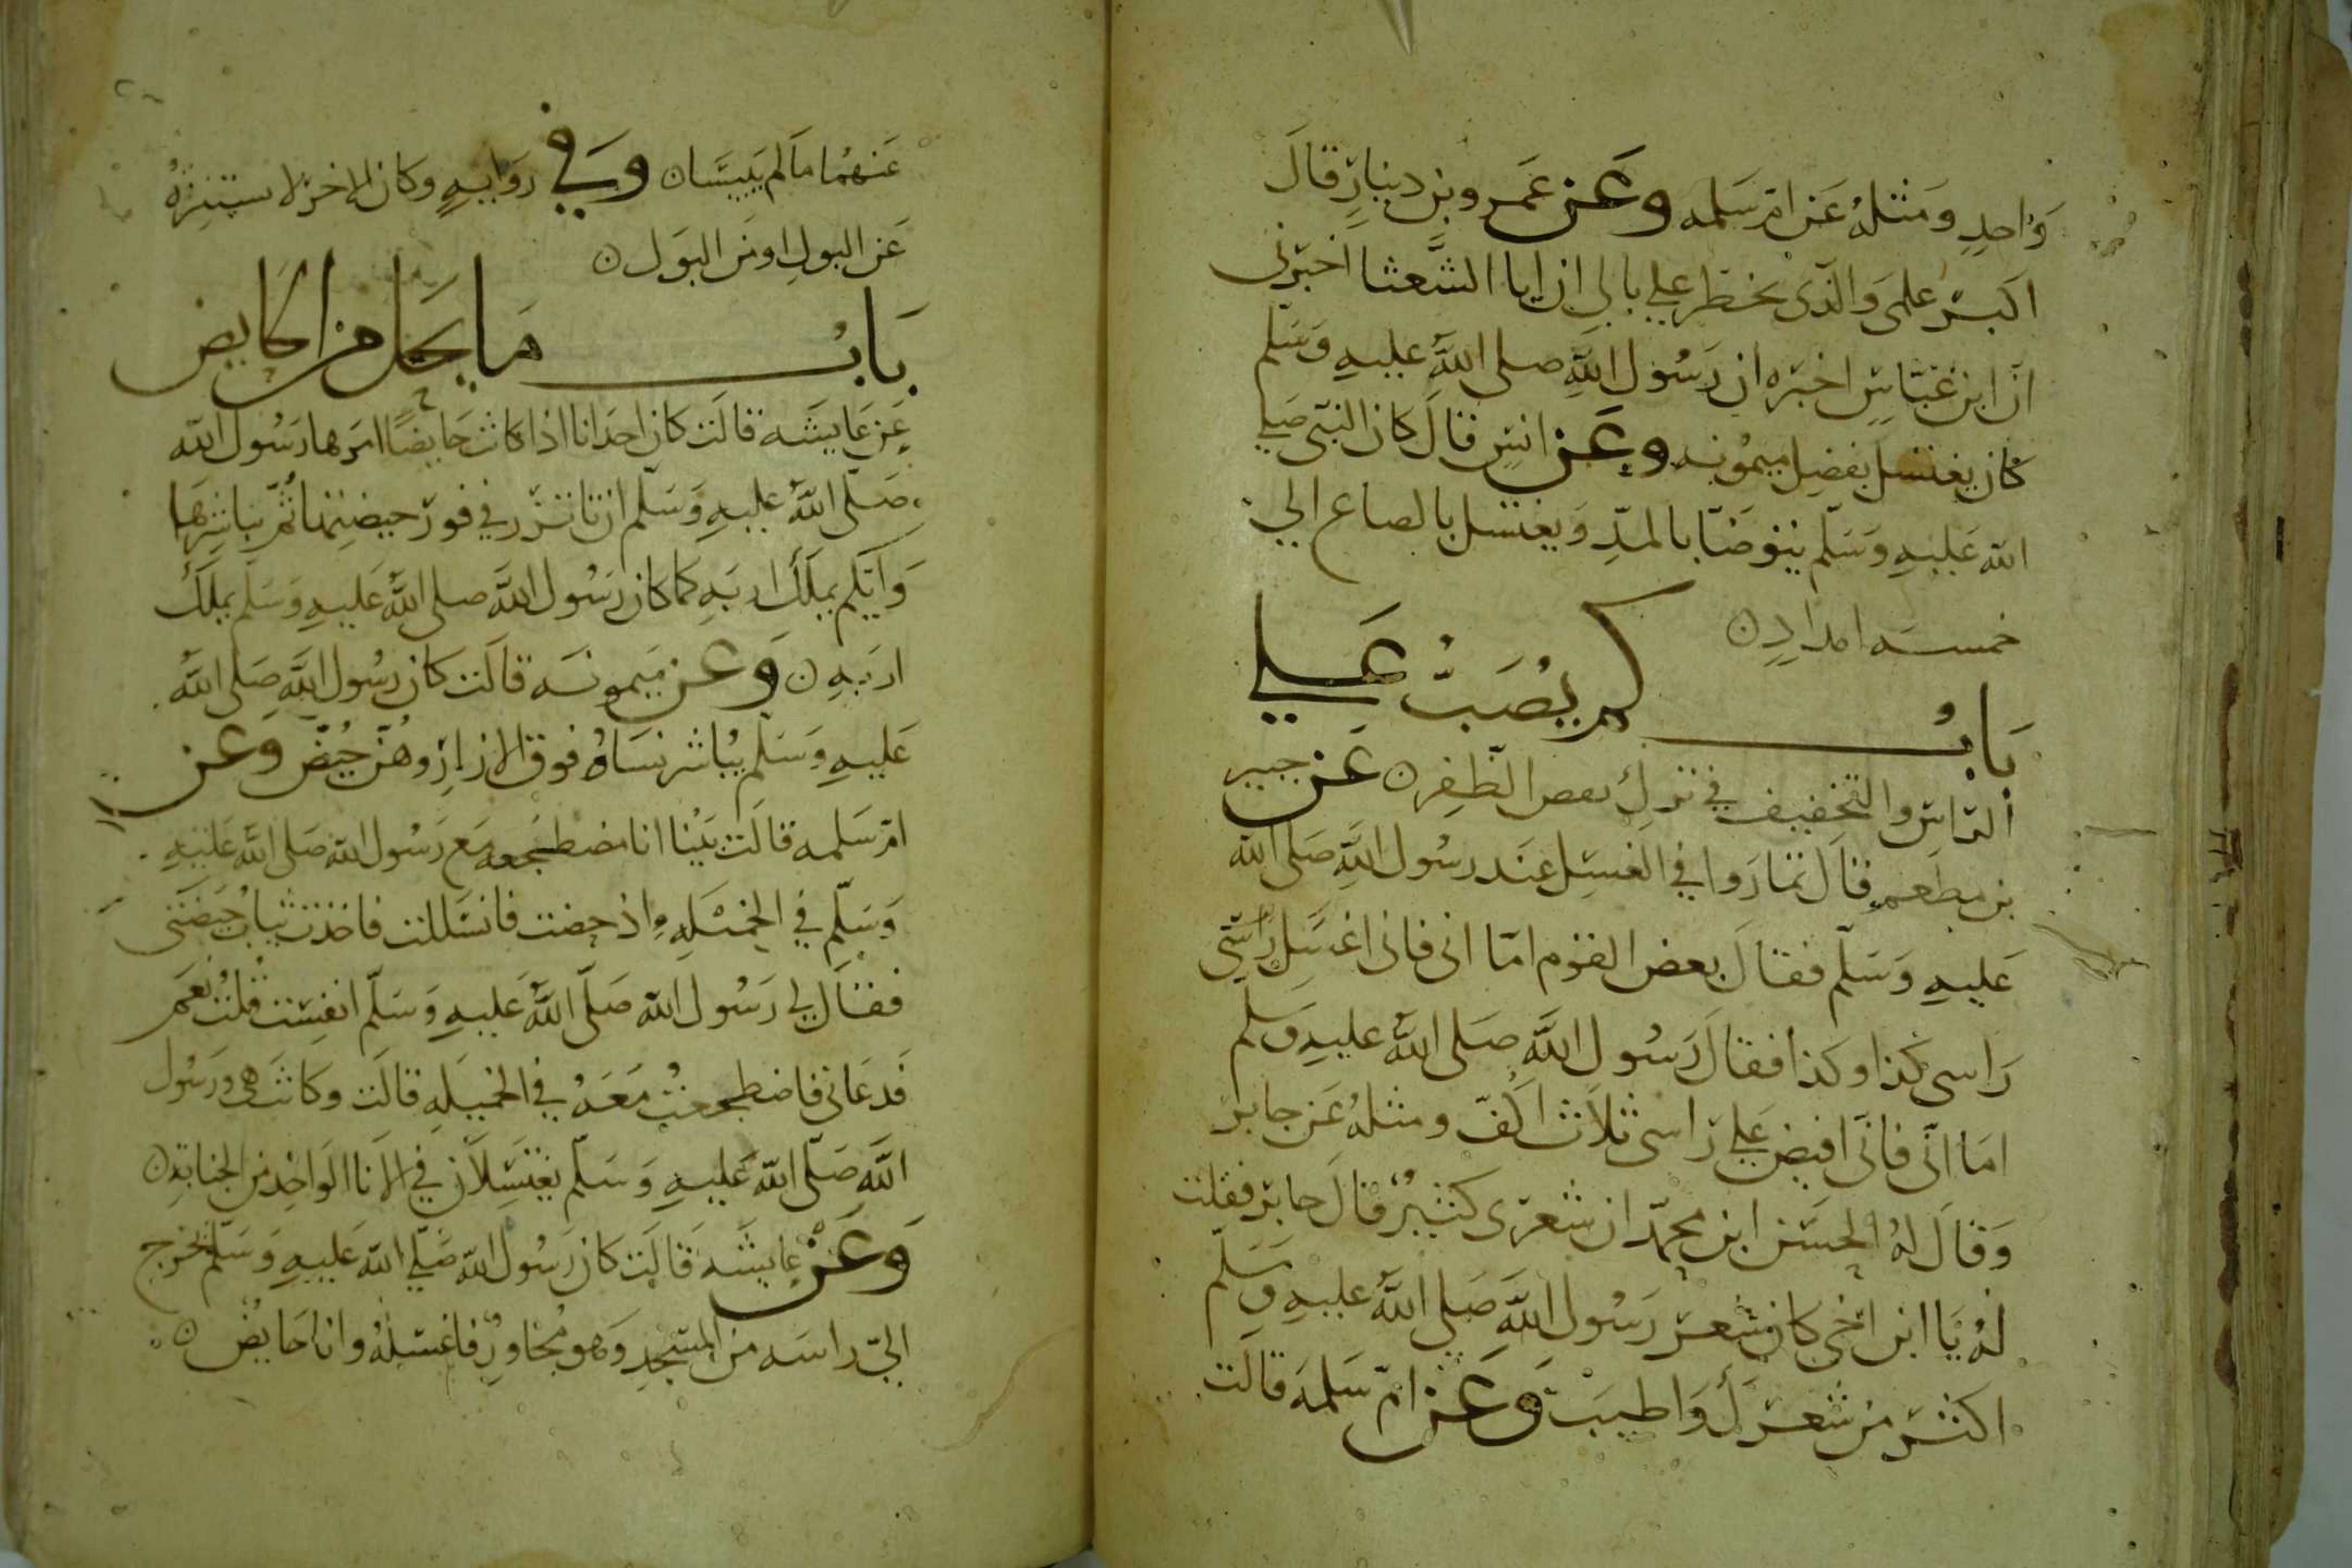 وَاحدٍ وَمثلهُ عَن امّ سَلمه وعَن عَمرو بن دينارٍ قالَ
اكبرُ علمى وَالّذى يخطر على بالى ان ابا الشَّعثا اخبرنى
انّ ابن عَبّاسٍ اخبَره ان رَسُول اللَّهِ صلى اللَّهُ عليهِ وَسَلّم
كان يغتسل بفضل ميمُونه وعَن انسٍ قالَ كان النبّى صَلى
الله عَليهِ وَسَلّم يتوضّا بالمدِّ وَيغتسل بالصاع الى
خمسَه امدادٍ ن
بَابُ كم يُصَبُّ عَلى
الرّاسِ والتّخفيف فى تركِ نقص الظّفر ن عَن جبير
بن مطعم قالَ تمارَوا فى الغسلِ عنَد رسُول اللَّهِ صَلى الله
عَليهِ وَسَلّم فقالَ بعض القوم امّا انى فانى اغسِل رَاسى
رَاسى كذا وكذا فقالَ رَسُول اللَّه صَلى اللَّهُ عليهِ وَسَلم
امَا انّى فانّى افيض عَلى رَاسى ثلاَث اكُفّ ومثلهُ عَن جابر
وَقالَ لهُ الحسَن ابن محمّد ان شعرَى كثيرٌ قالَ جابر فقلت
لهُ يَا ابن اخى كان شعر رَسُول اللَّهِ صَلى اللَّهُ عليهِ وسَلّم
اكثر من شعرَك وَاطيبَ وَعَن امّ سَلمَه قالَت
عَنهُما مَا لم يَيبَسَا ن وَفى رَوَايهٍ وَكان الاخرَ لا يستنزهُ
عَن البولِ او مَن البَول ن
بَابُ مَا يحَل من الحَايض
عَن عَايشَه قالَت كان احدَانا اذا كانت حَايضًا امَرها رَسُول الله
صَلّى اللَّهُ عليهِ وَسَلّم ان تاتزر فى فورِ حيضتِها ثُمّ يباشرهَا
وَايّكم يملك اربَهِ كما كان رَسُول اللَّه صلى اللَّهُ عَليهِ وَسَلم يملك
اربَهِ ن وَعَن مَيمونَه قالَت كان رسُول اللَّه صَلى اللَّهُ
عَليهِ وَسَلّم يُباشر نسَاهُ فوق الازارِ وهُنّ حُيّض وَعن
امّ سَلمه قالَت بَيْنا انا مضطجعه مَع رَسُول الله صَلى اللَّه عَليهِ
وَسَلّم فى الخمْيَلهِ اذ حضت فانسَللت فاخذت ثيابُ حيَضَتى
فقالَ لى رَسُول الله صَلّى اللَّهُ عَليهِ وَسَلّم انفِسَت قلتُ نعَم
فَدعَانى فاضطجعتُ مَعَهُ فى الخميَلهِ قالَت وكانَت هى وَرَسُول
اللَّهِ صَلّى اللَّه عَليهِ وَسَلّم يغتسِلاَن فى الاَنا الوَاحِد من الجنابةِ ن
وَعَنْ عايشَه قَالَت كان رَسُول الله صَلّى الله عَليهِ وَسَلّم يخرج
الىّ راسَه من المسَجدِ وَهو مُجَاورٌ فاغسَلهُ وانا حَايضٌ ن